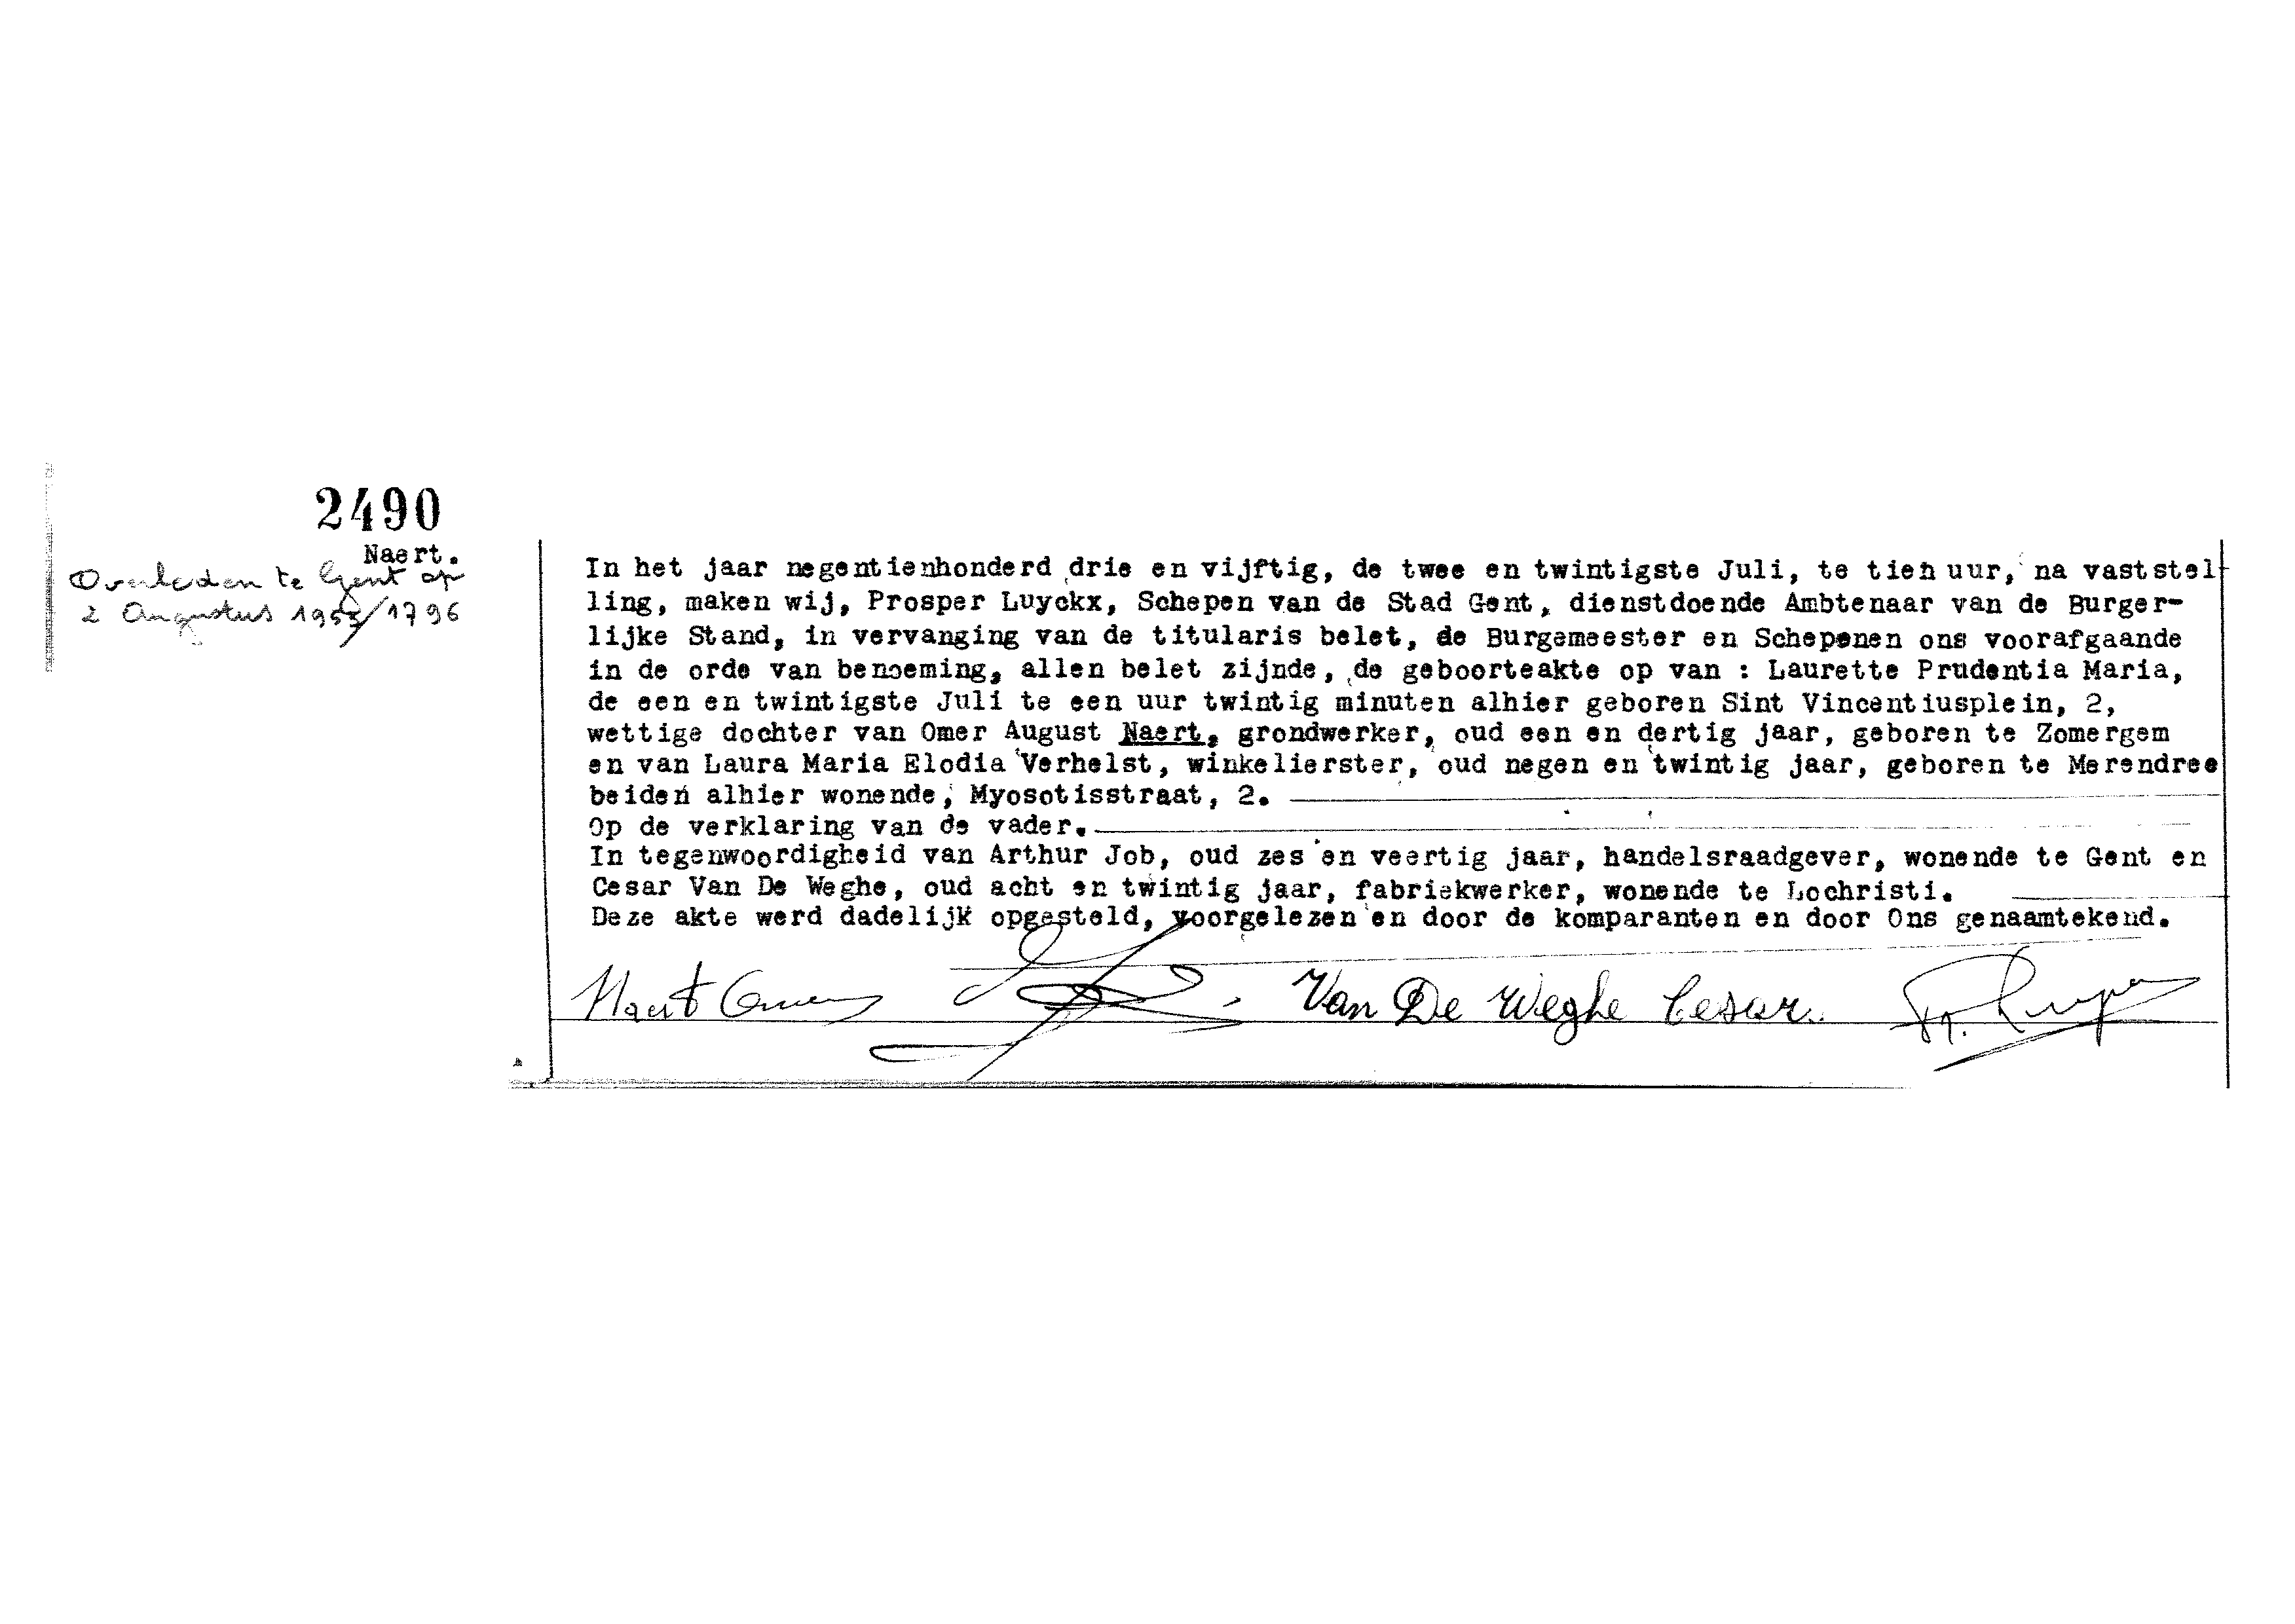 2490
Naert.
Overleden te Gent op
2 Augustus 1953/1796
In het jaar negentienhonderd drie en vijftig, de twee en twintigste Juli, te tien uur, na vaststel
ling, maken wij, Prosper Luyckx, Schepen van de Stad Gent, dienstdoende Ambtenaar van de Burger-
lijke Stand, in vervanging van de titularis belet, de Burgemeester en Schepenen ons voorafgaande
in de orde van benoeming, allen belet zijnde, de geboorteakte op van : Laurette Prudentia Maria,
de een en twintigste Juli te een uur twintig minuten alhier geboren Sint Vincentiusplein, 2,
wettige dochter van Omer August Naert, grondwerker, oud een en dertig jaar, geboren te Zomergem
en van Laura Maria Elodia Verhelst, winkelierster, oud negen en twintig jaar, geboren te Merendree
beiden alhier wonende, Myosotisstraat, 2.
Op de verklaring van de vader.
In tegenwoordigheid van Arthur Job, oud zes en veertig jaar, handelsraadgever, wonende te Gent en
Cesar Van De Weghe, oud acht en twintig jaar, fabriekwerker, wonende te Lochristi.
Deze akte werd dadelijk opgesteld, voorgelezen en door de komparanten en door Ons genaamtekend.
Naert Omer Van De Weghe Cesar.